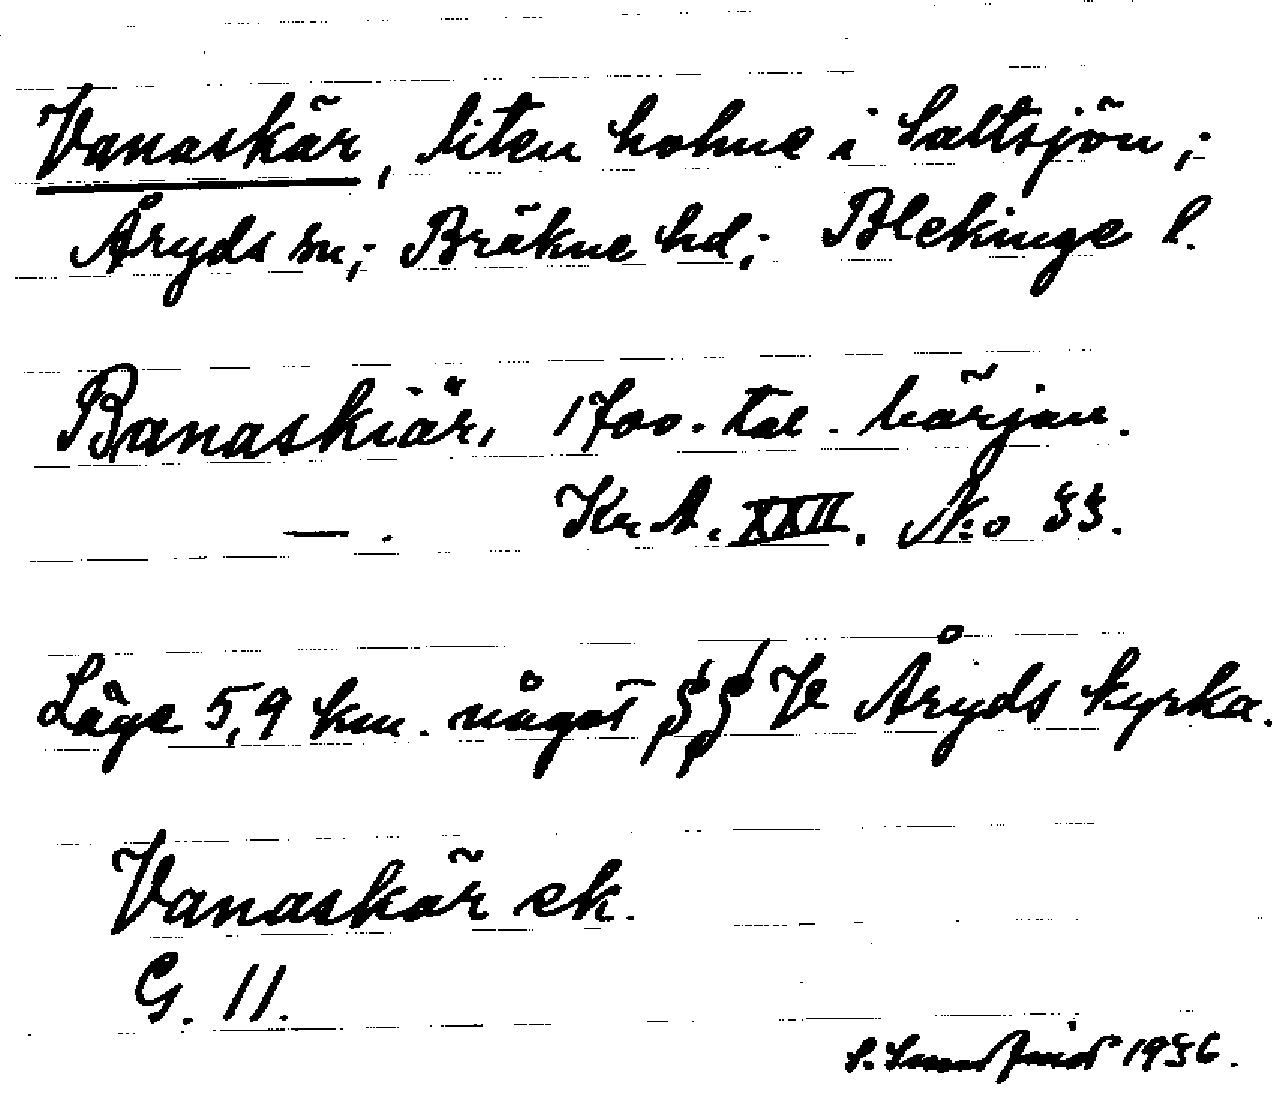 Vanaskär, liten holme i Saltsjön;
Åryds sn; Bräkne hd; Blekinge l.
Banaskiär, 1700-tal-början.
—. Kr A. XXII. N:o 33.
Läge 5,9 km. något S V Åryds kyrka.
Vanaskär ek.
G. 11.
S. 1936.